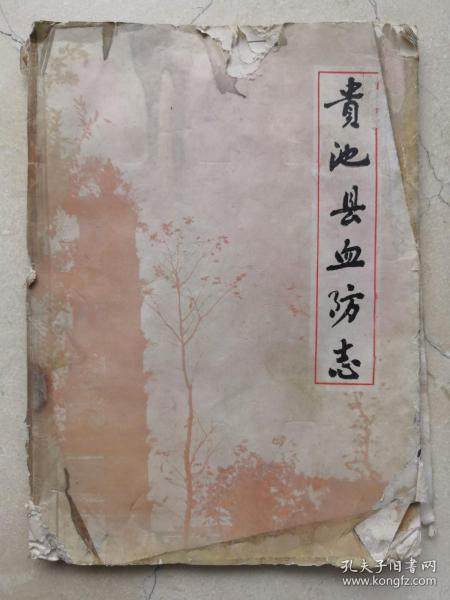 貴池县血防志
孔夫子旧书网
www.kongfz.com